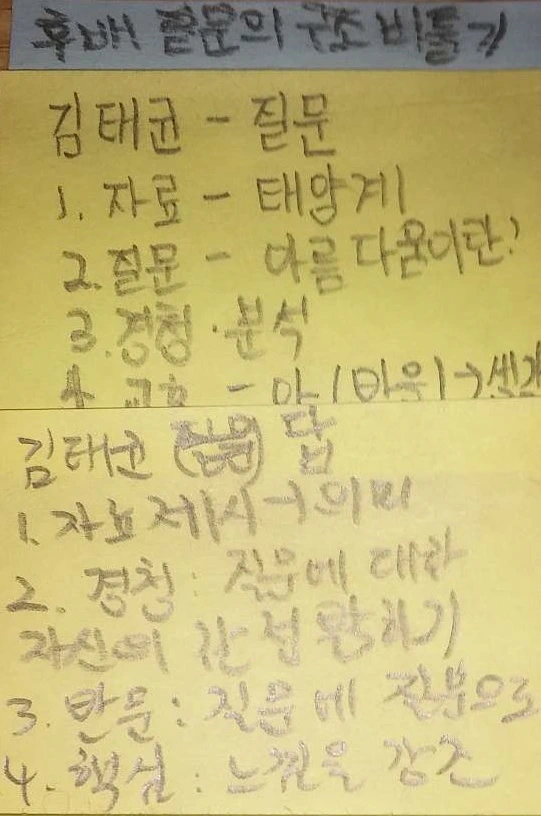 후배 질문의 구조 비틀기
김태균 - 질문
1. 자료 - 태양계
2. 질문 - 아름다움이란?
3. 경청·분석
4
김태균 답
1. 자료제시→의미
2. 경청: 질문에 대한
자신의 관점 말하기
3. 반문: 질문에 질문으로
4. 핵심: 느낌을 강조